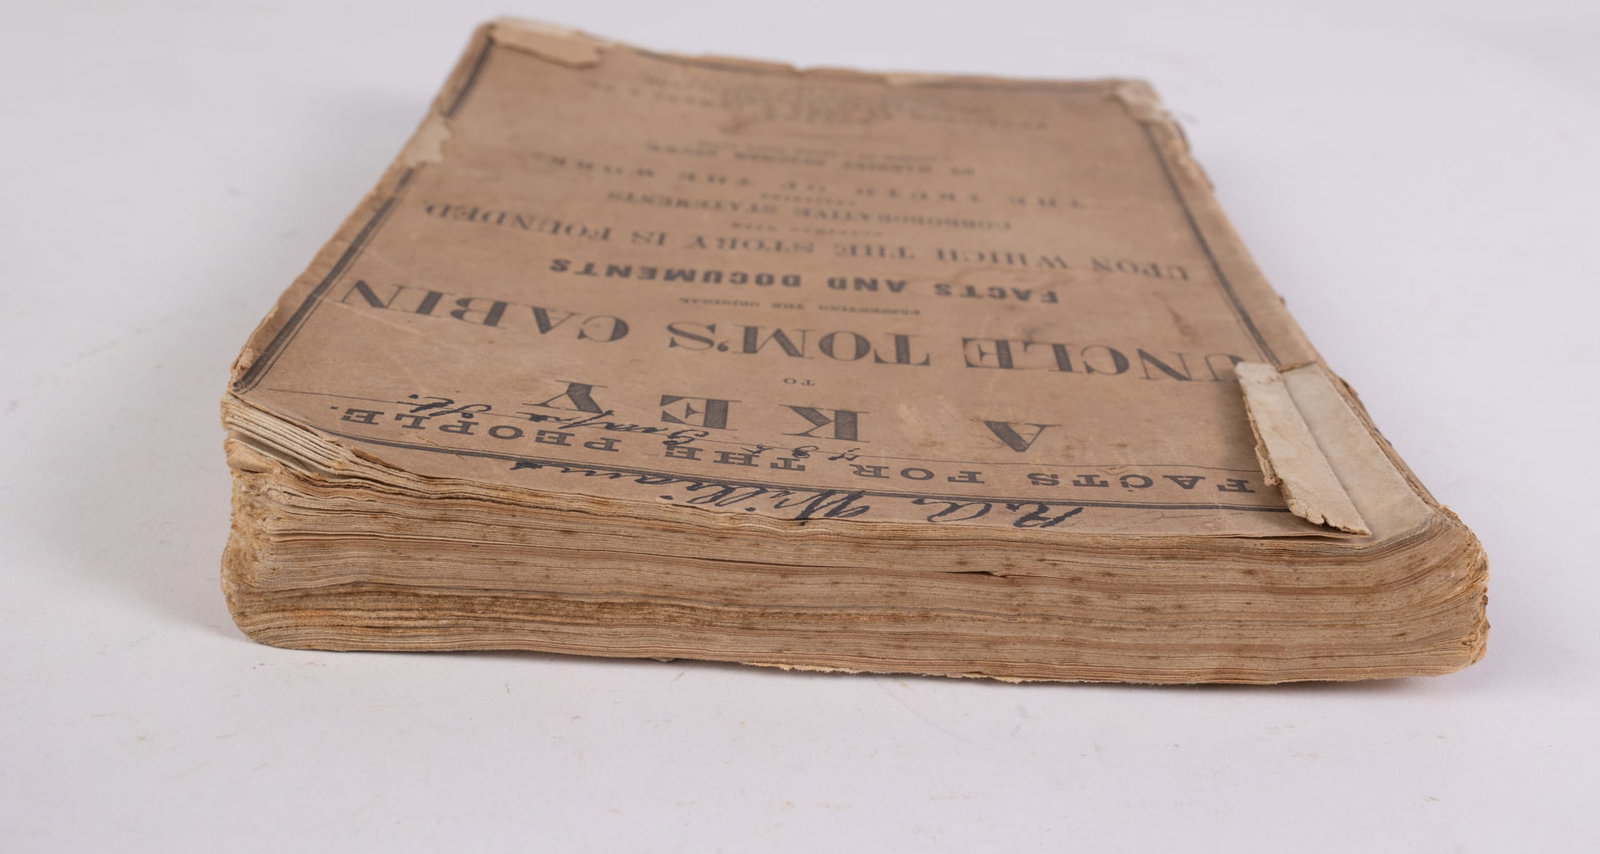 R.A. Williams
FACTS FOR THE PEOPLE.
A KEY
TO
UNCLE TOM'S CABIN
PRESENTING THE ORIGINAL
FACTS AND DOCUMENTS
UPON WHICH THE STORY IS FOUNDED.
TOGETHER WITH
CORROBORATIVE STATEMENTS
VERIFYING
THE TRUTH OF THE WORK.
BY HARRIET BEECHER STOWE